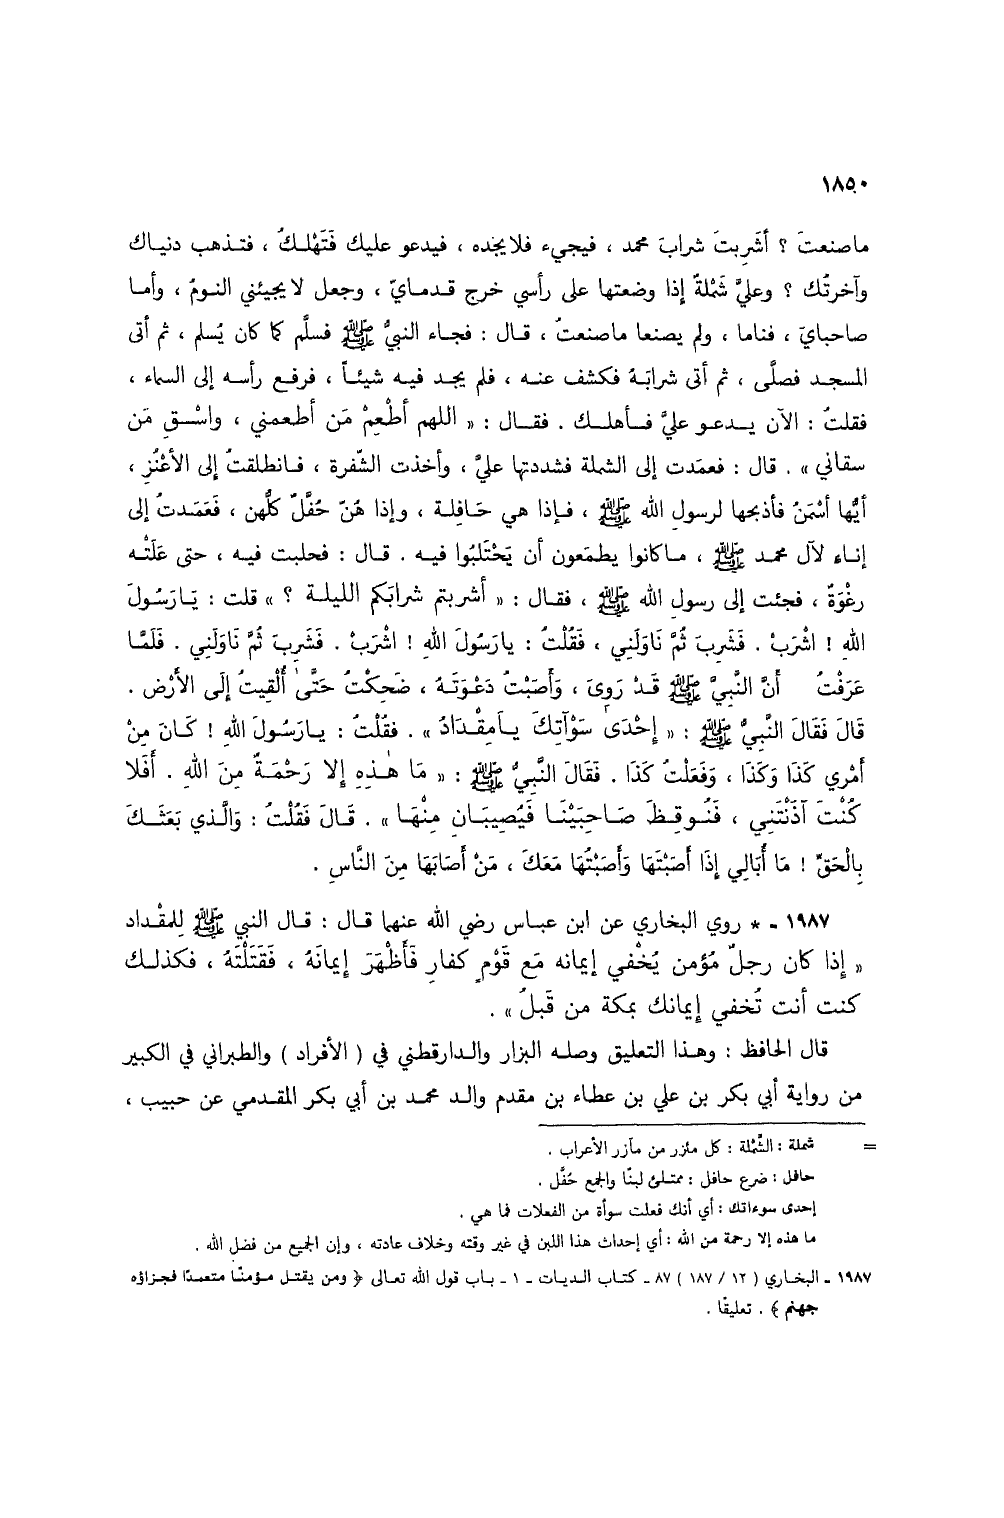 ١٨٥٠
ماصنعتَ ؟ أشَرِبتَ شرابَ محمد ، فيجيء فلايجده ، فيدعو عليك فَتَهْلـكُ ، فتـذهب دنيـاك
وآخرتُك ؟ وعليَّ شَمْلةٌ إذا وضعتها على رأسي خرج قـدمـايَ ، وجعل لايجيئني النـومُ ، وأمـا
صاحبايَ ، فناما ، ولم يصنعا ماصنعتُ ، قـال : فجـاء النبيُّ ﷺ فسلَّم كما كان يُسلم ، ثم أتى
المسجـد فصلَّى ، ثم أتى شرابَـهُ فكشف عنـه ، فلم يجـد فيـه شيئـاً ، فرفـع رأسـه إلى السماء ،
فقلتُ : الآن يـدعـو عليَّ فـأهلـك . فقـال : « اللهم أَطْعِمْ مَن أطعمني ، واسْـقِ مَن
سقاني » . قال : فعمَدت إلى الشملة فشددتها عليَّ ، وأخذت الشَّفرة ، فـانطلقتُ إلى الأعْنُزِ ،
أيُّها أسْمَنُ فأذبحها لرسولِ الله ﷺ ، فـإذا هي حَـافِلـة ، وإذا هُنّ حُفَّلٌ كلُّهن ، فَعَمَـدتُ إلى
إنـاء لآل محمـد ﷺ ، مـاكانوا يطمَعون أن يَحْتَلِبُوا فيـه . قـال : فحلبت فيـه ، حتى عَلَتْـه
رغْوَةٌ ، فجئت إلى رسول الله ﷺ ، فقـال : « أشربتم شرابَكم الليلـة ؟ » قلت : يَـارَسُولَ
اللهِ ! اشْرَبْ . فَشَرِبَ ثُمَّ نَاوَلَنِي ، فَقُلْتُ : يارَسُولَ اللهِ ! اشْرَبْ . فَشَرِبَ ثُمَّ نَاوَلَنِي . فَلَمَّـا
عَرَفْتُ أَنَّ النَّبِيَّ ﷺ قَـدْ رَوِىَ ، وَأَصَبْتُ دَعْوَتَـهُ ، ضَحِكْتُ حَتَّىٰ أُلْقِيتُ إِلَى الأَرْضِ .
قَالَ فَقَالَ النَّبِيُّ ﷺ : « إِحْدَىٰ سَوْآتِكَ يـامِقْـدَادُ » . فقُلْتُ : يـارَسُولَ اللهِ ! كَـانَ مِنْ
أَمْرِي كَذَا وَكَذَا ، وَفَعَلْتُ كَذَا . فَقَالَ النَّبِيُّ ﷺ : « مَا هَـٰذِهِ إلا رَحْمَـةٌ مِنَ اللهِ . أَفَلا
كُنْتَ آذَنْتَنِي ، فَنُـوقِـظَ صَـاحِبَيْنَـا فَيُصِيبَـانِ مِنْهَـا » . قَـالَ فَقُلْتُ : وَالَّـذي بَعَثَـكَ
بِالْحَقِّ ! مَا أُبَالِي إِذَا أَصَبْتَهَا وَأَصَبْتُهَا مَعَكَ ، مَنْ أَصَابَهَا مِنَ النَّاسِ .
١٩٨٧ ـ * روي البخاري عن ابن عبـاس رضي الله عنهما قـال : قـال النبي ﷺ لِلمقْـداد
« إذا كان رجلٌ مُؤمن يُخْفي إيمانه مَع قَوْمٍ كفار فَأَظْهَرَ إيمانَهُ ، فَقَتَلْتَهُ ، فكذلـك
كنت أنت تُخفي إيمانك بمكة من قَبلُ » .
قال الحافظ : وهـذا التعليق وصلـه البزار والـدارقطني في ( الأفراد ) والطبراني في الكبير
من رواية أبي بكر بن علي بن عطاء بن مقدم والـد محمـد بن أبي بكر المقـدمي عن حبيب ،
= شملة : الشَّمْلة : كل مئزر من مآزر الأعراب .
حافل : ضرع حافل : ممتلئ لبنًا والجمع حُفَّل .
إحدى سوءاتك : أي أنك فعلت سوأة من الفعلات فما هي .
ما هذه إلا رحمة من الله : أي إحداث هذا اللبن في غير وقته وخلاف عادته ، وإن الجميع من فضل الله .
١٩٨٧ ـ البخـاري ( ١٢ / ١٨٧ ) ٨٧ ـ كتـاب الـديـات ـ ١ ـ بـاب قول الله تعـالى ﴿ ومن يقتـل مـؤمنًـا متعمـدًا فجـزاؤه
جهنم ﴾ . تعليقًا .